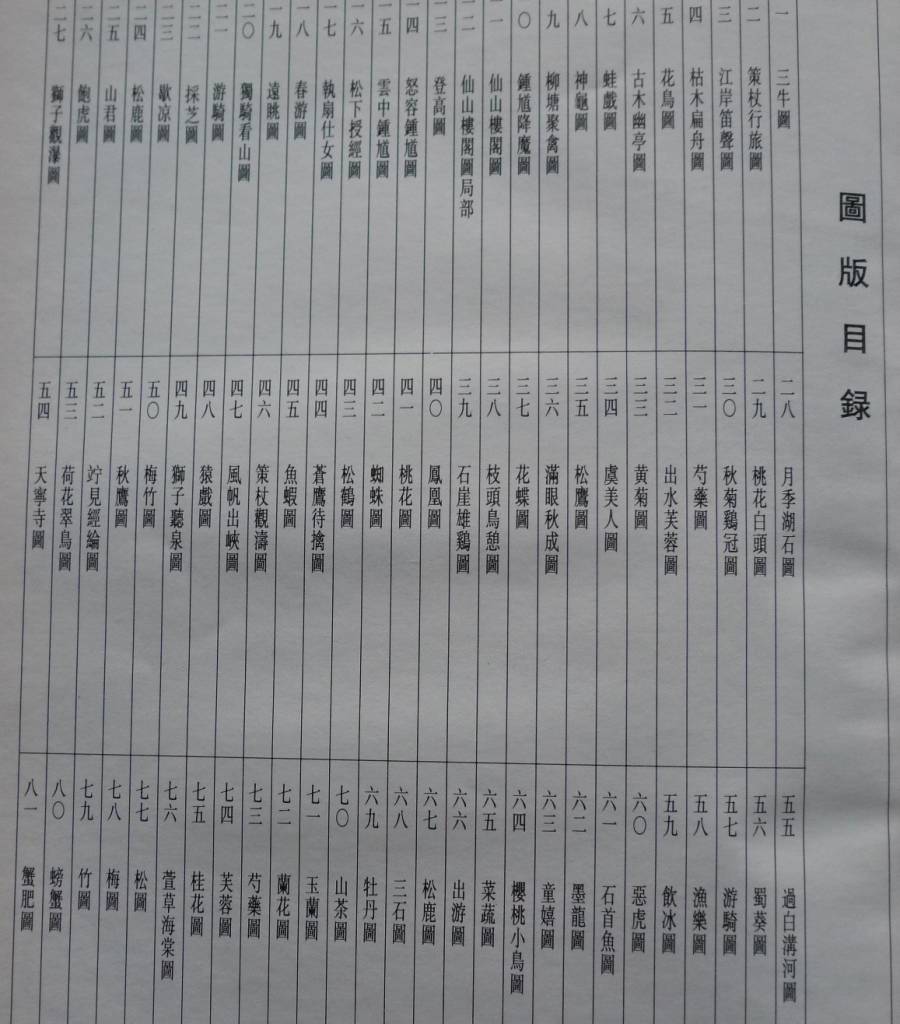 圖版目録
一 三牛圖
二 策杖行旅圖
三 江岸笛聲圖
四 枯木扁舟圖
五 花鳥圖
六 古木幽亭圖
七 蛙戲圖
八 神龜圖
九 柳塘聚禽圖
一〇 鍾馗降魔圖
一一 仙山樓閣圖
一二 仙山樓閣圖局部
一三 登高圖
一四 怒容鍾馗圖
一五 雲中鍾馗圖
一六 松下授經圖
一七 執扇仕女圖
一八 春游圖
一九 遠眺圖
二〇 獨騎看山圖
二一 游騎圖
二二 採芝圖
二三 歇凉圖
二四 松鹿圖
二五 山君圖
二六 飽虎圖
二七 獅子觀瀑圖
二八 月季湖石圖
二九 桃花白頭圖
三〇 秋菊鷄冠圖
三一 芍藥圖
三二 出水芙蓉圖
三三 黄菊圖
三四 虞美人圖
三五 松鷹圖
三六 滿眼秋成圖
三七 花蝶圖
三八 枝頭鳥憩圖
三九 石崖雄鷄圖
四〇 鳳凰圖
四一 桃花圖
四二 蜘蛛圖
四三 松鶴圖
四四 蒼鷹待擒圖
四五 魚蝦圖
四六 策杖觀濤圖
四七 風帆出峽圖
四八 猿戲圖
四九 獅子聽泉圖
五〇 梅竹圖
五一 秋鷹圖
五二 竚見經綸圖
五三 荷花翠鳥圖
五四 天寧寺圖
五五 過白溝河圖
五六 蜀葵圖
五七 游騎圖
五八 漁樂圖
五九 飲冰圖
六〇 惡虎圖
六一 石首魚圖
六二 墨龍圖
六三 童嬉圖
六四 櫻桃小鳥圖
六五 菜蔬圖
六六 出游圖
六七 松鹿圖
六八 三石圖
六九 牡丹圖
七〇 山茶圖
七一 玉蘭圖
七二 蘭花圖
七三 芍藥圖
七四 芙蓉圖
七五 桂花圖
七六 萱草海棠圖
七七 松圖
七八 梅圖
七九 竹圖
八〇 螃蟹圖
八一 蟹肥圖